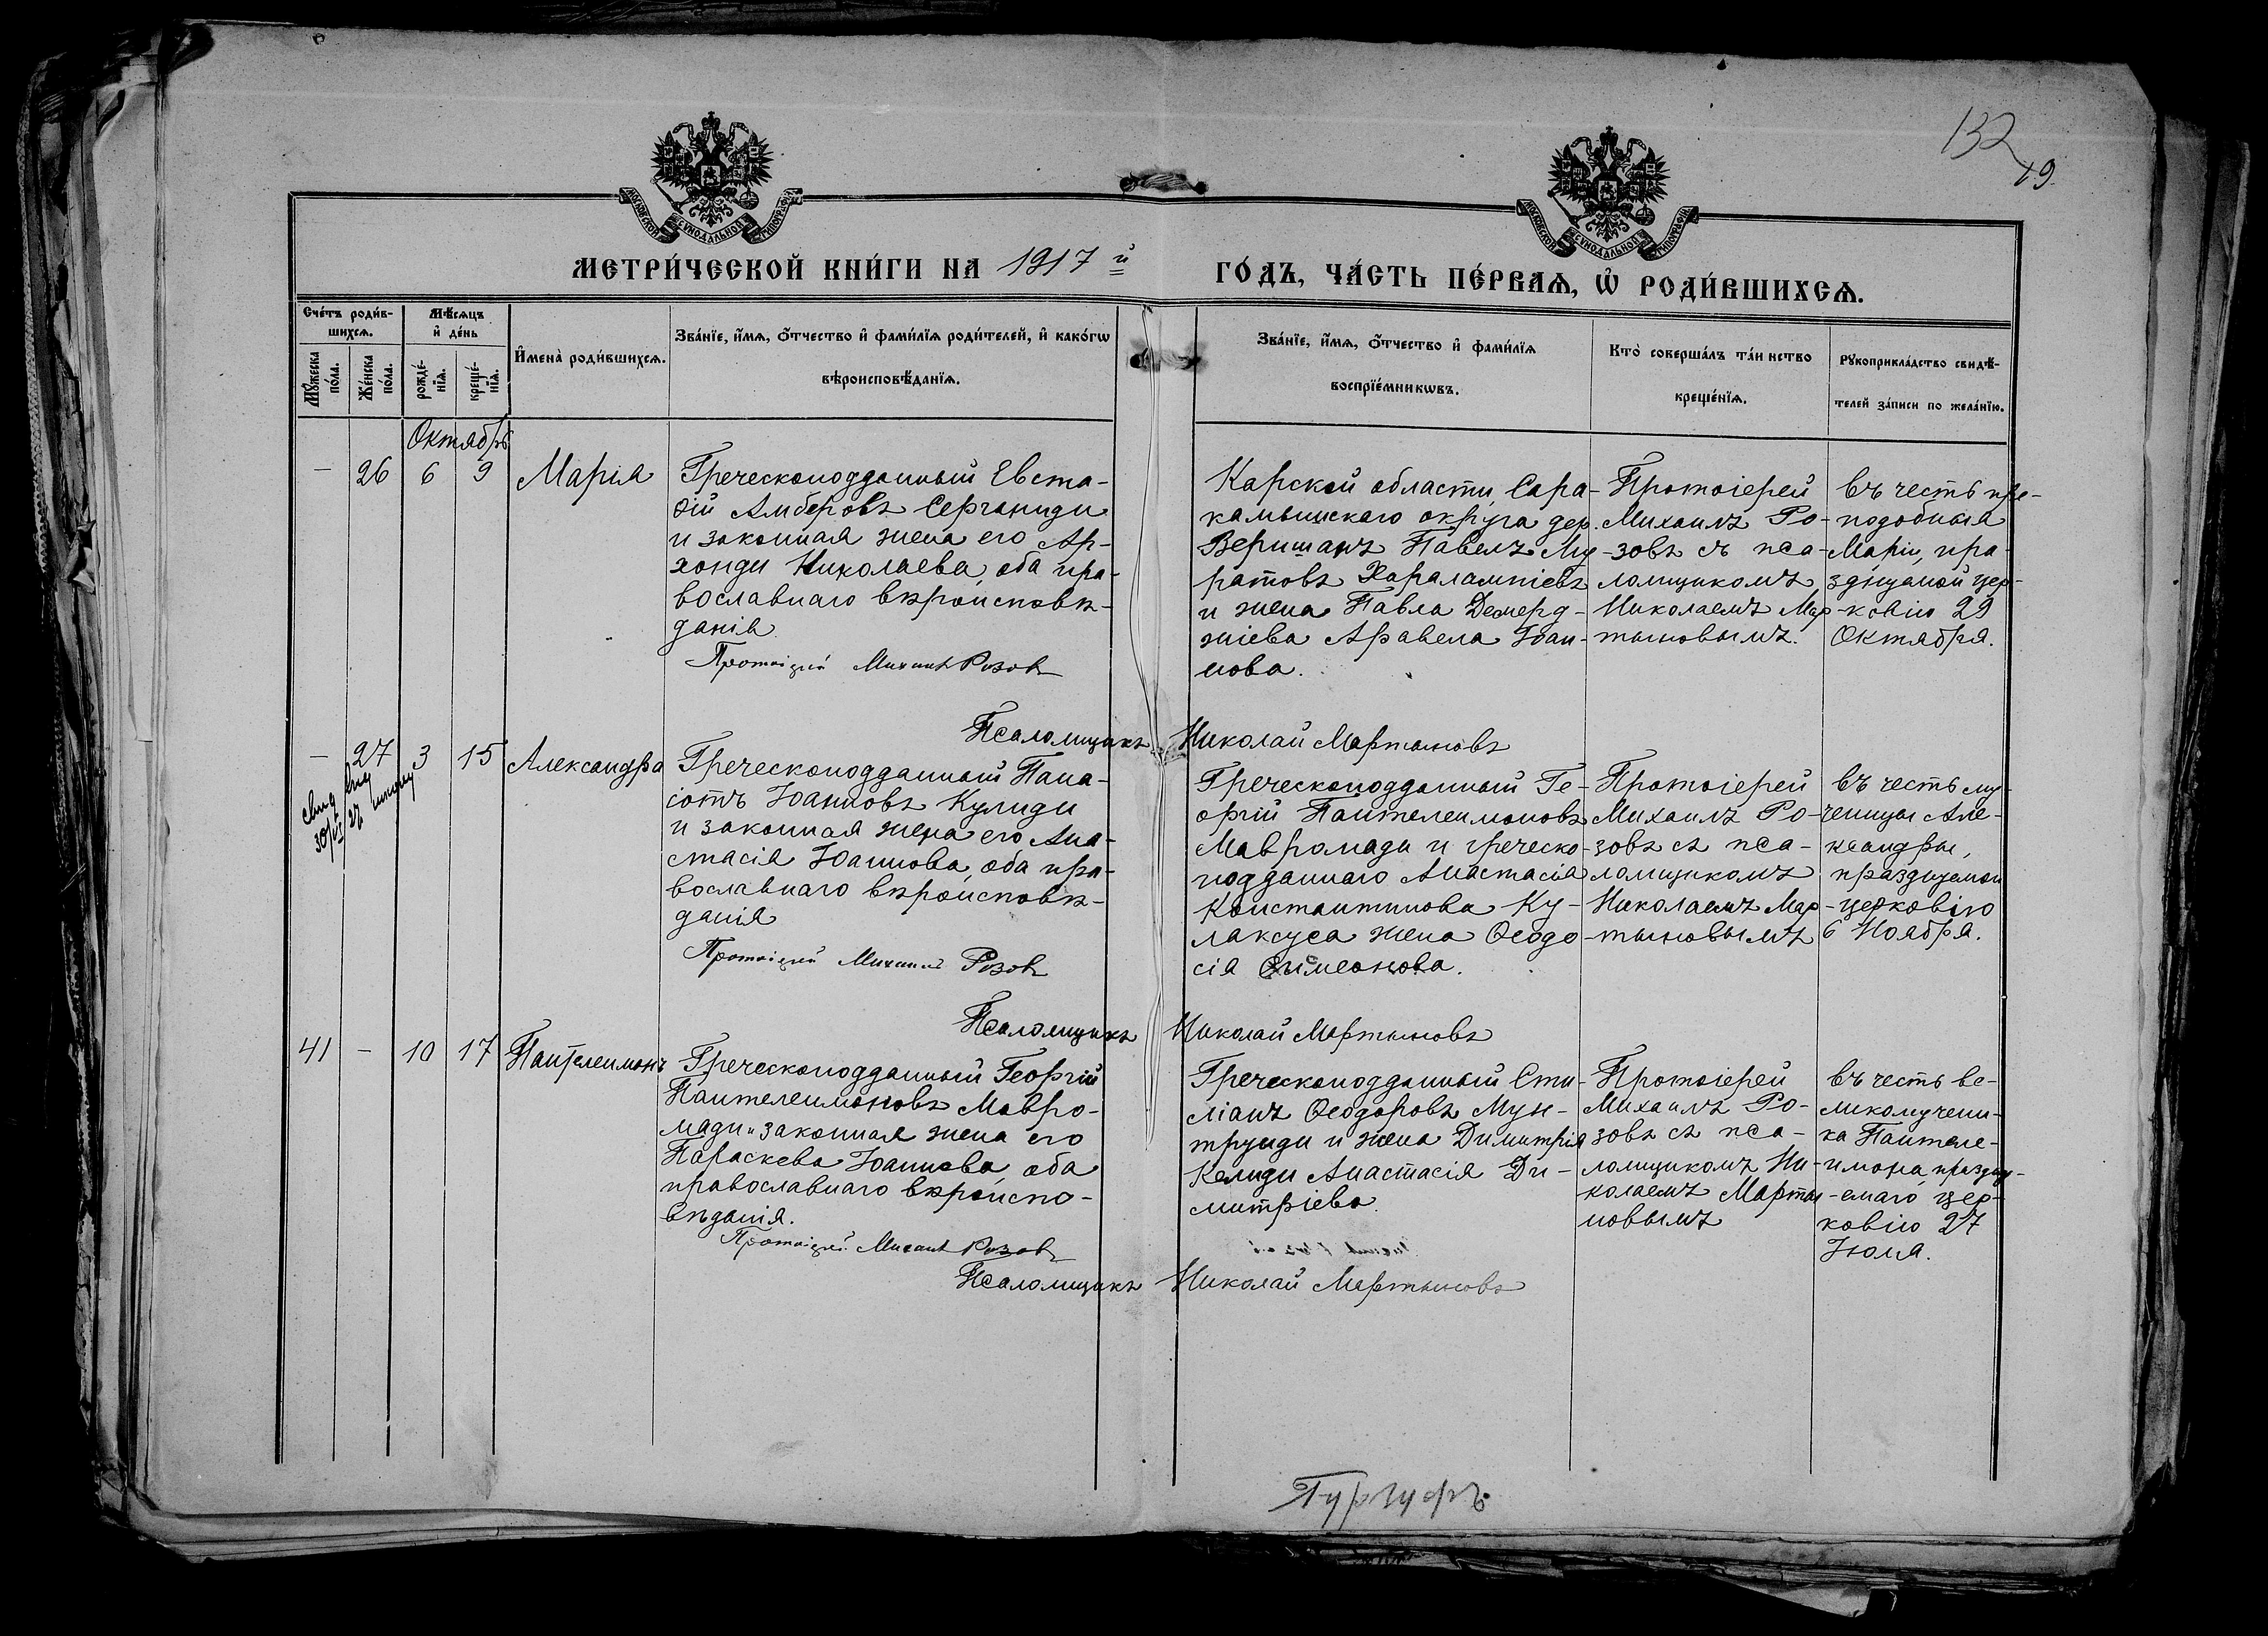 132
19.
МОСКОВСКОЙ СѴНОДАЛЬНОЙ ТИПОГРАФІИ
МОСКОВСКОЙ СѴНОДАЛЬНОЙ ТИПОГРАФІИ
МЕТРИ́ЧЕСКОЙ КНИ́ГИ НА 1917 й
ГО́ДЪ, ЧА́СТЬ ПЕ́РВАѦ, Ѡ҆ РОДИ́ВШИХСѦ.
Сче́тъ роди́в-
шихсѧ.
Мꙋ́жеска по́ла.
Же́нска по́ла.
Мѣ́сѧцъ
и҆ де́нь
рожде́-
нїѧ.
креще́-
нїѧ.
И҆мена̀ роди́вшихсѧ.
Зва́нїе, и҆́мѧ, ѻ҆́тчество и҆ фами́лїѧ роди́телей, и҆ како́гѡ
вѣроисповѣ́данїѧ.
Зва́нїе, и҆́мѧ, ѻ҆́тчество и҆ фами́лїѧ
воспрїе́мникѡвъ.
Кто̀ соверша́лъ та́инство
креще́нїѧ.
Рꙋкоприкла́дство свидѣ́-
телей за́писи по жела́нїю.
Октябрь
— 26 6 9 Марія
Греческоподданный Евста-
ѳій Амберовъ Серганиди
и законная жена его Ар-
хонди Николаева, оба пра-
вославнаго вѣроисповѣ-
данія
Протоіерей Михаилъ Розовъ
Карской области, Сара-
камышскаго округа дер.
Веришанъ Павелъ Му-
ратовъ Харалампіевъ
и жена Павла Демерд-
жіева Аравела Іоан-
нова.
Протоіерей
Михаилъ Ро-
зовъ съ пса-
ломщикомъ
Николаемъ Мар-
тыновымъ.
въ честь пре-
подобныя
Маріи, пра-
зднуемой цер-
ковію 29
Октября.
Псаломщикъ Николай Мартыновъ
— 27 3 15 Александра
Греческоподданный Пана-
іотъ Іоанновъ Кулиди
и законная жена его Ана-
стасія Іоаннова, оба пра-
вославнаго вѣроисповѣ-
данія
Протоіерей Михаилъ Розовъ
Греческоподданный Ге-
оргій Пантелеимоновъ
Мавромади и греческо-
подданнаго Анастасія
Константинова Ку-
лаксуса жена Ѳеодо-
сія Симеонова.
Протоіерей
Михаилъ Ро-
зовъ съ пса-
ломщикомъ
Николаемъ Мар-
тыновымъ
въ честь му-
ченицы Але-
ксандры,
празднуемой
церковію
6 Ноября.
Псаломщикъ Николай Мартыновъ
41 — 10 17 Пантелеимонъ
Греческоподданный Георгій
Пантелеимоновъ Мавро-
мади и законная жена его
Параскева Іоаннова, оба
православнаго вѣроиспо-
вѣданія.
Протоіерей Михаилъ Розовъ
Греческоподданный Сти-
ліанъ Ѳеодоровъ Мун-
труиди и жена Димитрія
Келиди Анастасія Ди-
митріева.
Протоіерей
Михаилъ Ро-
зовъ съ пса-
ломщикомъ Ни-
колаемъ Марты-
новымъ
въ честь ве-
ликомучени-
ка Пантеле-
имона, праздну-
емаго цер-
ковію 27
Іюля.
Псаломщикъ Николай Мартыновъ
Гурзуфъ.